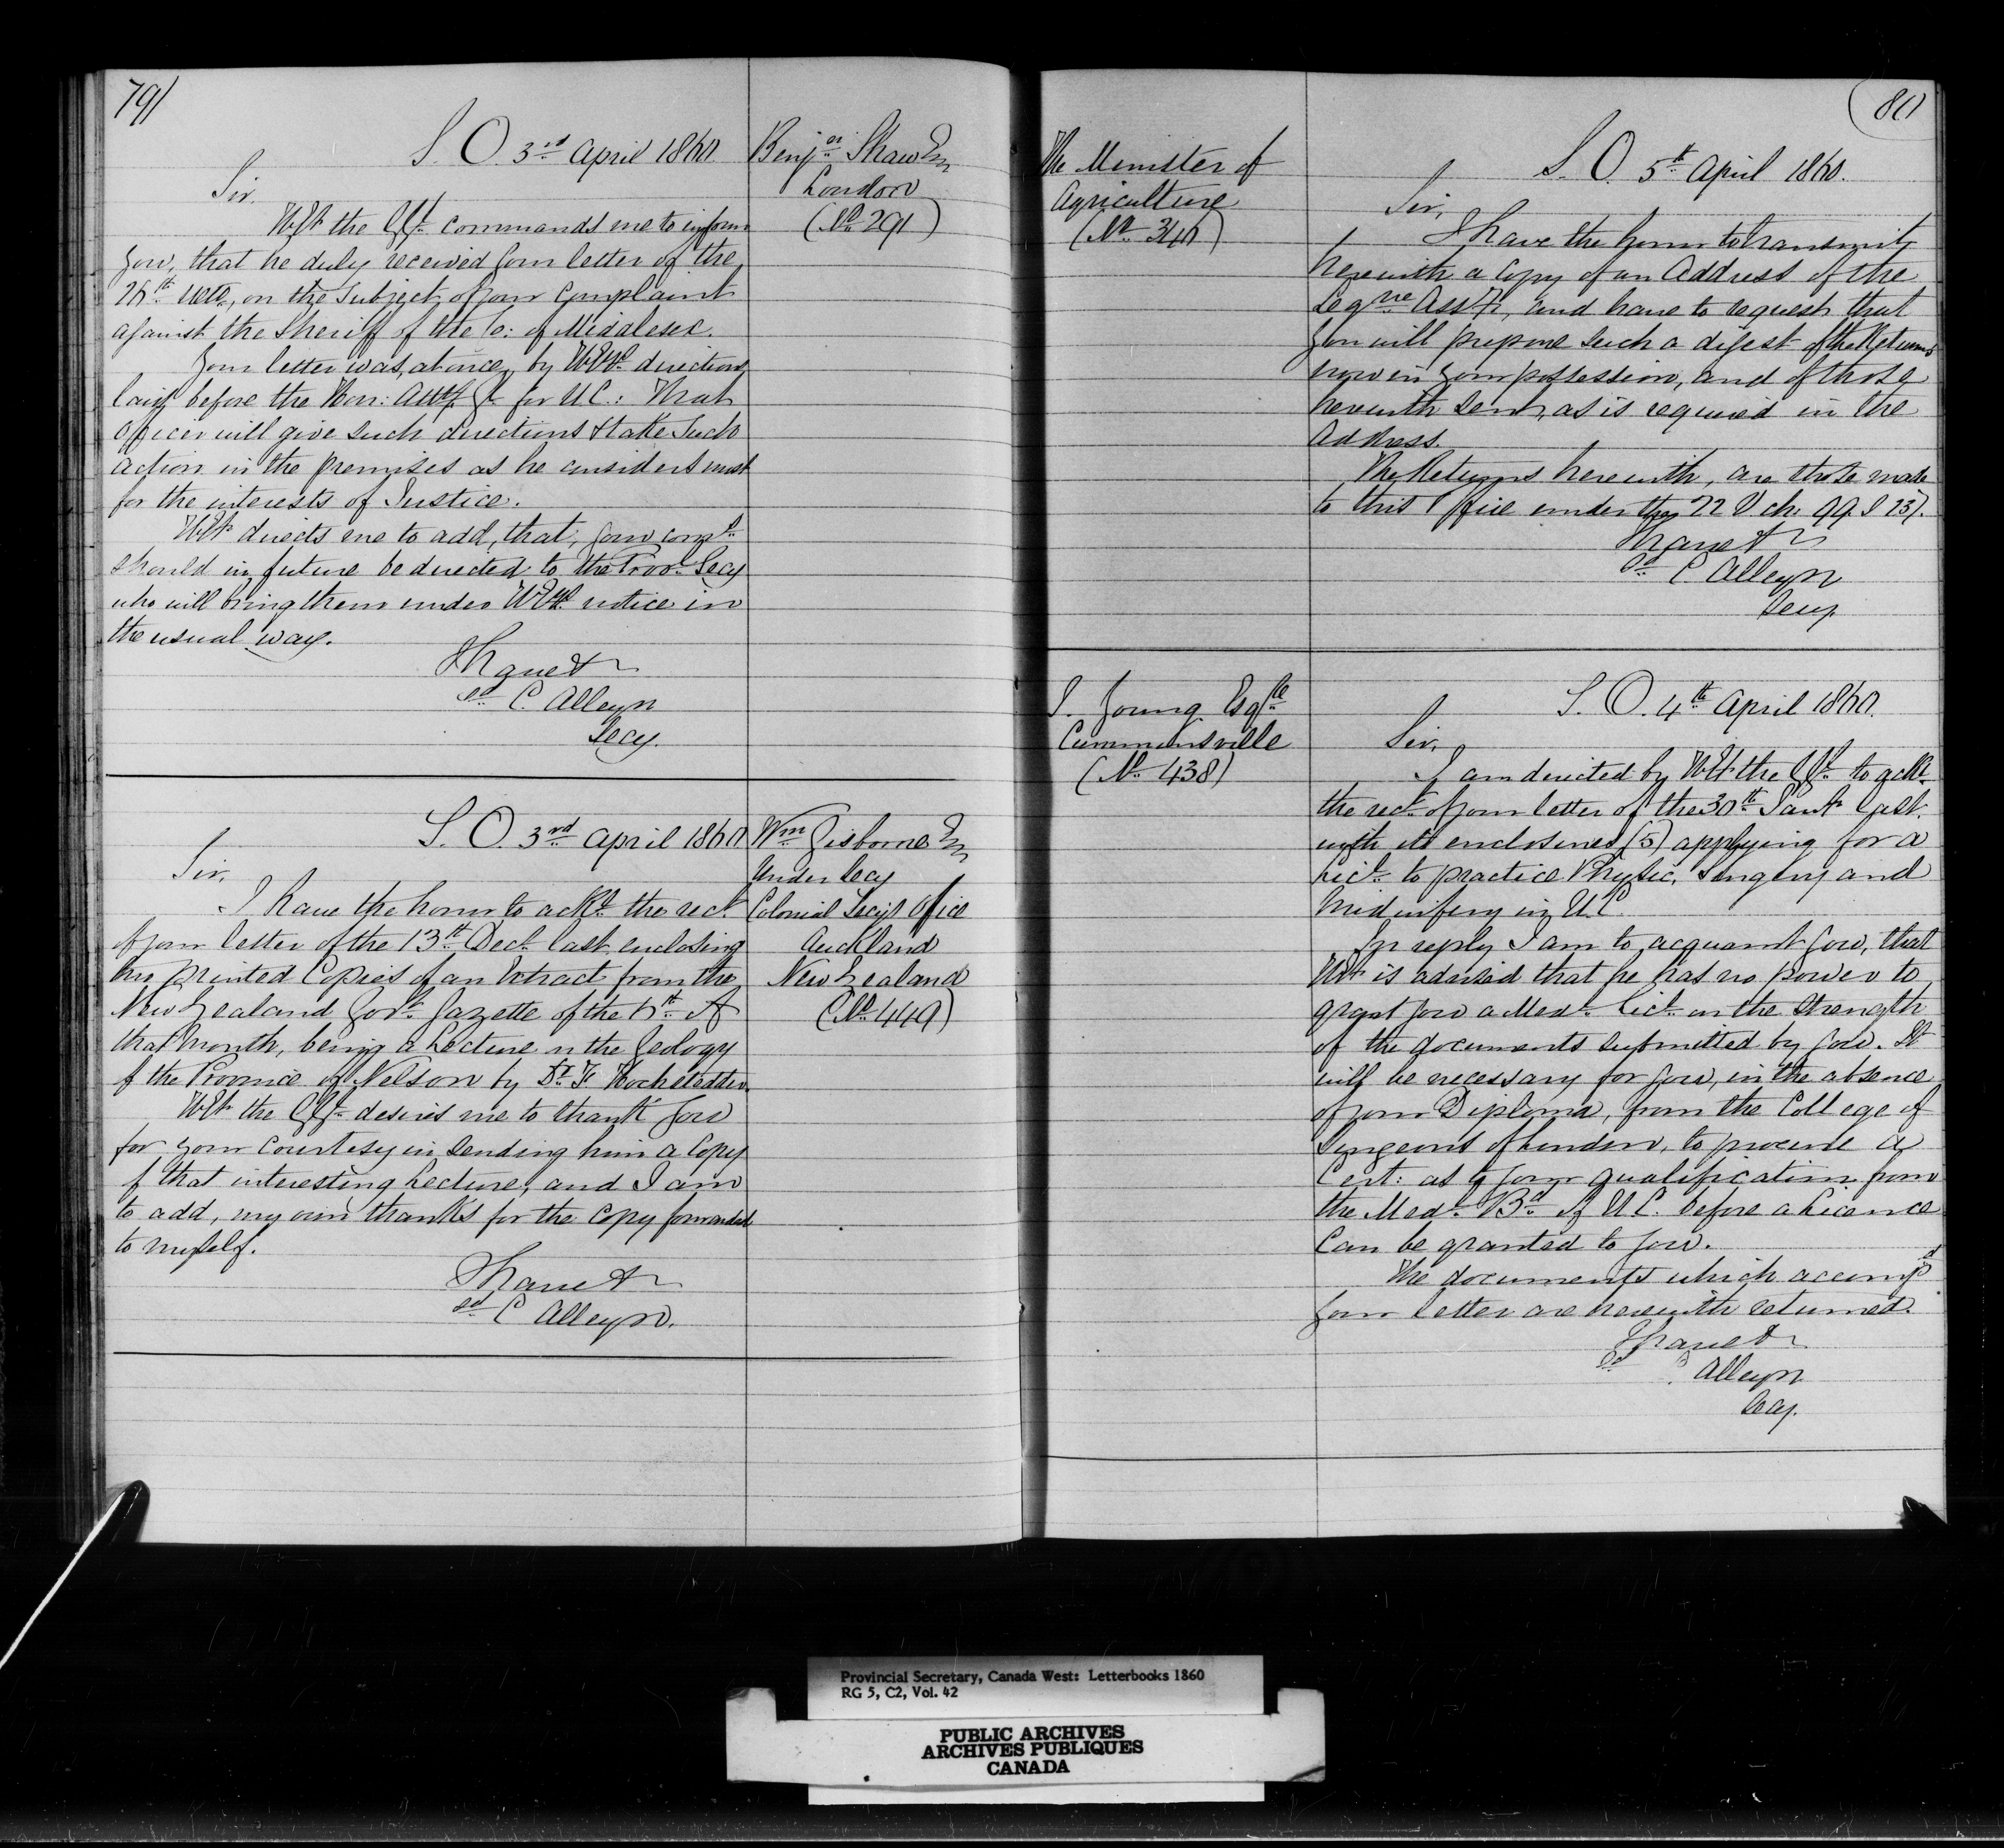 79/
S. O. 3rd April 1860.
Benjn Shaw Esq
London
(No 291)
Sir.
HE the GG. commands me to inform
you, that he duly received your letter of the
26th ulto, on the subject of your complaint
against the Sheriff of the Co: of Middlesex.
Your letter was, at once, by HEys direction,
laid before the Hon: Atty Gl for U.C.: That
Officer will give such directions & take such
action in the premises as he considers most
for the interests of Justice.
HE directs me to add, that, your comns
should in future be directed to the Provl Secy
who will bring them under HEys notice in
the usual way.
I have &
sd C. Alleyn
Secy.
S. O. 3rd April 1860
Wm Gisborne Esq
Under Secy
Colonial Secys Office
Auckland
New Zealand
(No 449)
Sir,
I have the honor to ackn the rect
of your letter of the 13th Decr last, enclosing
two printed Copies of an Extract from the
New Zealand Govt Gazette of the 6th of
that month, being a Lecture on the Geology
of the Province of Nelson by Dr F Hochstedder.
HE the GG. desires me to thank you
for your courtesy in sending him a copy
of that interesting Lecture, and I am
to add, my own thanks for the copy forwarded
to myself.
I have &
sd C Alleyn.
80
The Minister of
Agriculture
(No 340)
S. O. 5th April 1860.
Sir,
I have the honor to transmit
herewith a copy of an Address of the
Legve Assy, and have to request that
you will prepare such a digest of the Returns
now in your possession, and of those
herewith sent, as is required in the
Address.
The Returns herewith, are those made
to this Office under the 22 V ch: 99. S 237.
I have &
sd C Alleyn
Secy.
J. Young Esqre
Cumminsville
(No 438)
S. O. 4th April 1860.
Sir,
I am directed by HE the GG. to ackn
the rect of your letter of the 30th Jany last.
with its enclosures (5) applying for a
Lice to practice Physic, Surgery and
Midwifery in U.C.
In reply I am to acquaint you, that
HE is advised that he has no power to
grant you a Medl Lice on the strength
of the documents submitted by you. It
will be necessary for you, in the absence
of your Diploma, from the College of
Surgeons of London, to procure a
Cert: as to your qualification from
the Medl Bd of U.C. before a Licence
can be granted to you.
The documents which accompd
your letter are herewith returned.
I have &
sd C Alleyn
Secy.
Provincial Secretary, Canada West: Letterbooks 1860
RG 5, C2, Vol. 42
PUBLIC ARCHIVES
ARCHIVES PUBLIQUES
CANADA